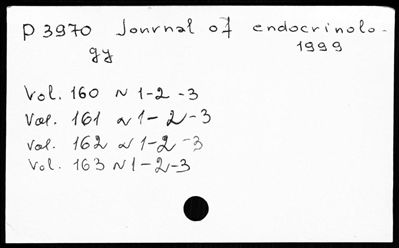 P 3970 Journal of endocrinolo-
gy 1999
Vol. 160 N 1-2-3
Vol. 161 N 1-2-3
Vol. 162 N 1-2-3
Vol. 163 N 1-2-3